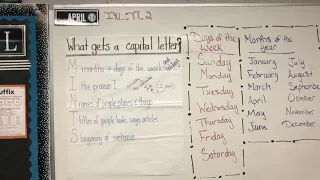 APRIL
IXL: TT.2
What gets a capital letter?
M months + days of the week
I the pronoun I
N names of people, places + things
T titles of people, books, songs, articles
S beginning of sentences
Days of the
week
Sunday
Monday
Tuesday
Wednesday
Thursday
Friday
Saturday
Months of the
year
January July
February August
March Septembe
April October
May November
June December
L
uffix